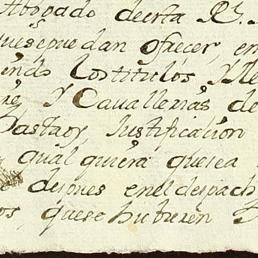 Abogado decsta R.
quesepuedan ofrecer, en
iendo Lostitulos, Y lle
ne, Y Cavallerias de
Bastax, Iustificacion
qual quiera quesea
despues enel despach
os, quese hubieren